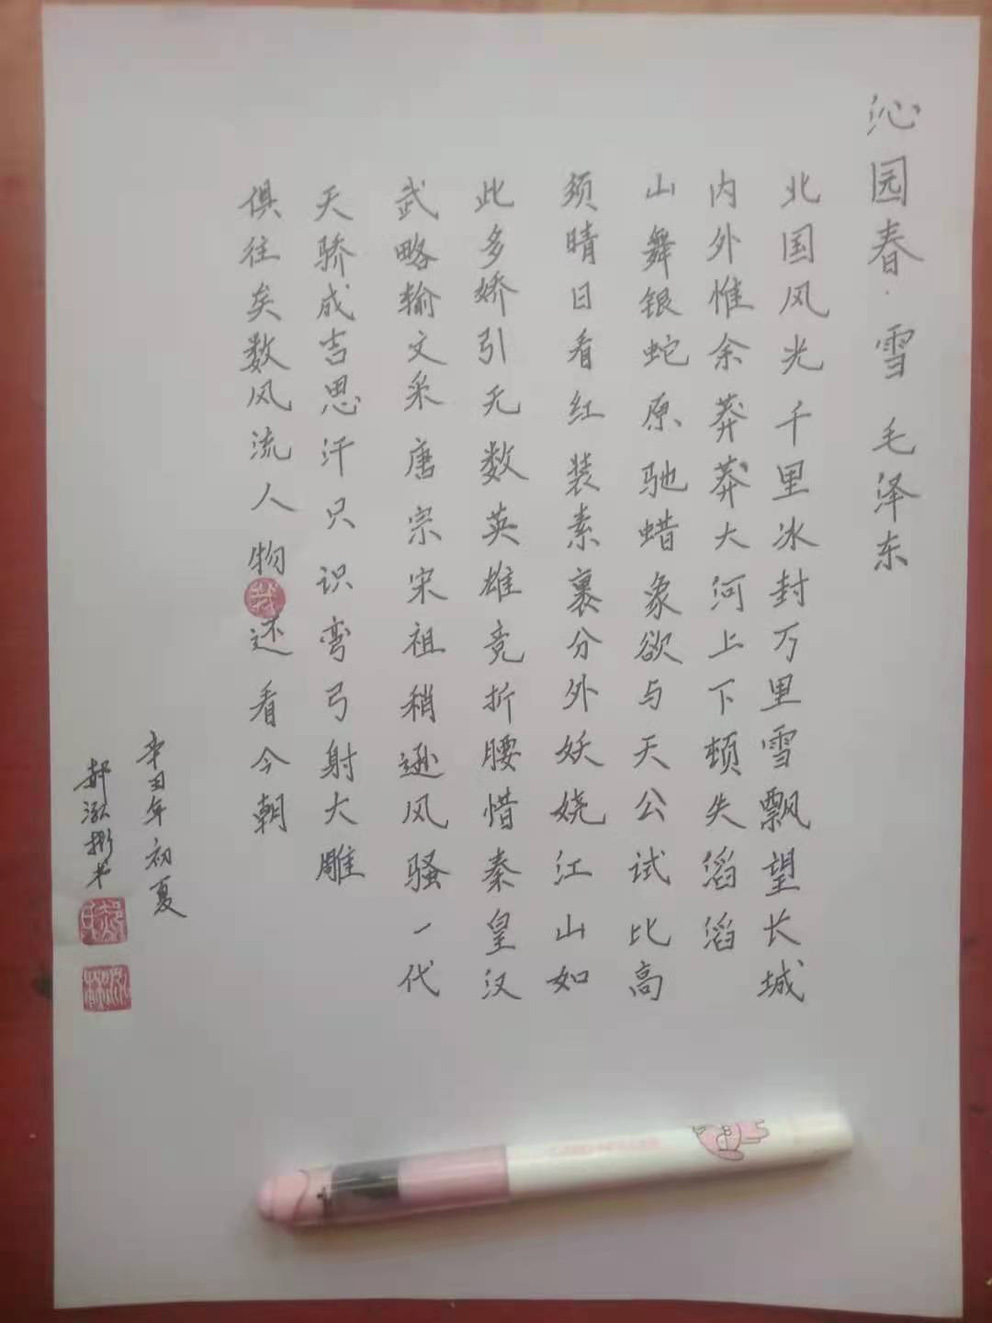 沁园春·雪 毛泽东
北国风光千里冰封万里雪飘望长城
内外惟余莽莽大河上下顿失滔滔
山舞银蛇原驰蜡象欲与天公试比高
须晴日看红装素裹分外妖娆江山如
此多娇引无数英雄竞折腰惜秦皇汉
武略输文采唐宗宋祖稍逊风骚一代
天骄成吉思汗只识弯弓射大雕
俱往矣数风流人物还看今朝
辛丑年初夏
郝泓彬书